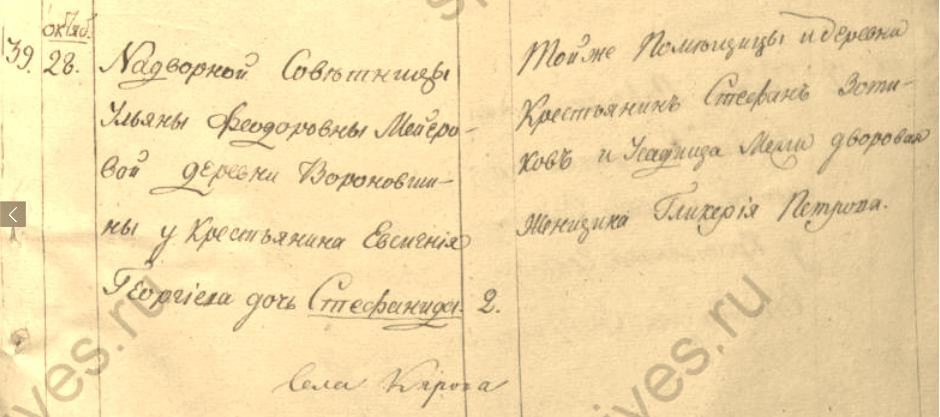 октяб.
39. 28.
Надворной Совѣтницы
Ульяны Феодоровны Мейеро-
вой деревни Вороновши-
ны у Крестьянина Евсигнія
Георгіева дочь Стефанида. 2.
Тойже Помѣщицы и деревни
Крестьянинъ Стефанъ Зоти-
ковъ и дворовая
Женщина Гликерія Петрова.
села
ves.ru
ives.ru